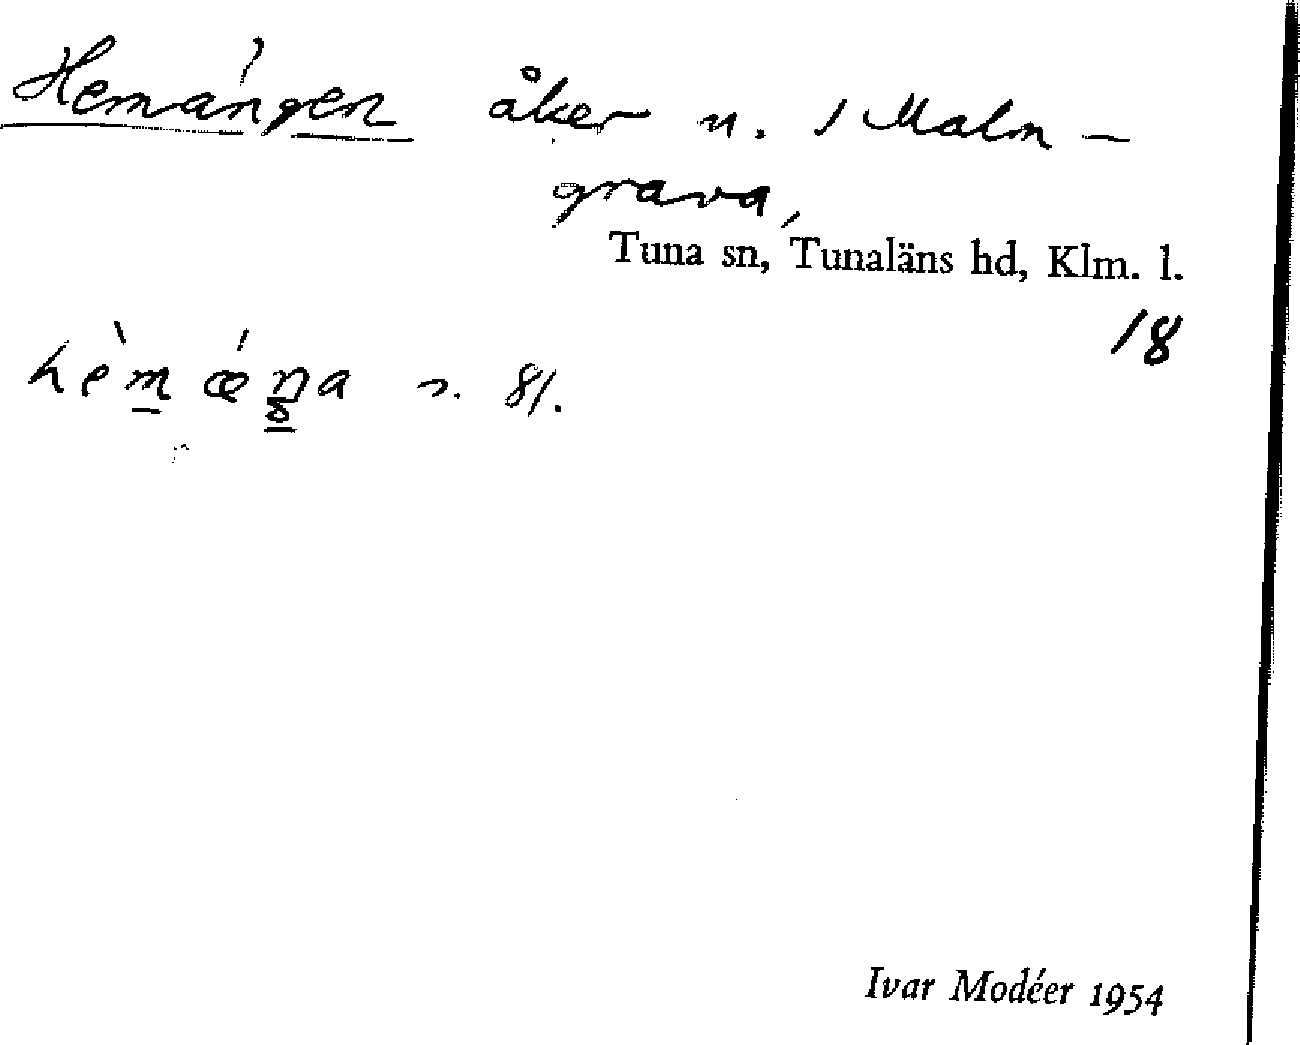 Hemängen åker n. / Malm-
grava,
Tuna sn, Tunaläns hd, Klm. l.
18
s. 81.
Ivar Modéer 1954